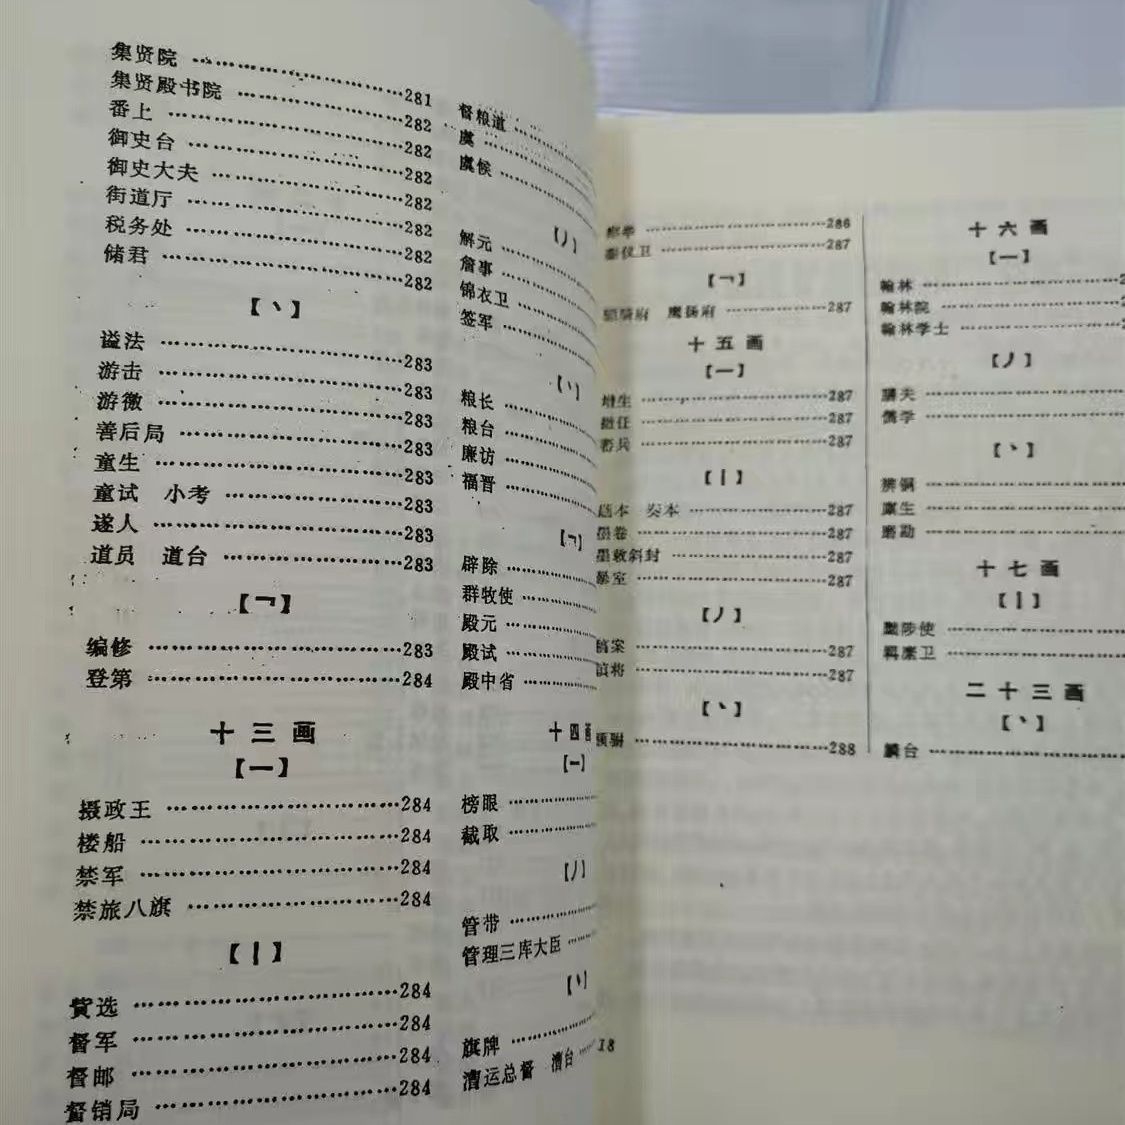 集贤院 ……281
集贤殿书院 ……282
番上 ……282
御史台 ……282
御史大夫 ……282
街道厅 ……282
税务处 ……282
储君 ……282
【丶】
谥法 ……283
游击 ……283
游徼 ……283
善后局 ……283
童生 ……283
童试 小考 ……283
遂人 ……283
道员 道台 ……283
【乛】
编修 ……283
登第 ……284
十三画
【一】
摄政王 ……284
楼船 ……284
禁军 ……284
禁旅八旗 ……284
【丨】
赀选 ……284
督军 ……284
督邮 ……284
督销局 ……284
督粮道 ……
虞 ……
虞候 ……
【丿】
解元 ……
詹事 ……
锦衣卫 ……
签军 ……
【丶】
粮长 ……
粮台 ……
廉访 ……
福晋 ……
【乛】
辟除 ……
群牧使 ……
殿元 ……
殿试 ……
殿中省 ……
十四画
【一】
榜眼 ……
截取 ……
【丿】
管带 ……
管理三库大臣 ……
【丶】
旗牌 ……
漕运总督 漕台 ……
18
……286
銮仪卫 ……287
【乛】
骠骑府 鹰扬府 ……287
十五画
【一】
增生 ……287
……287
……287
【丨】
题本 奏本 ……287
墨卷 ……287
墨敕斜封 ……287
暴室 ……287
【丿】
稿案 ……287
镇将 ……287
【丶】
……288
十六画
【一】
翰林 ……
翰林院 ……
翰林学士 ……
【丿】
膳夫 ……
儒学 ……
【丶】
辨铜 ……
廪生 ……
磨勘 ……
十七画
【丨】
黜陟使 ……
羁縻卫 ……
二十三画
【丶】
麟台 ……